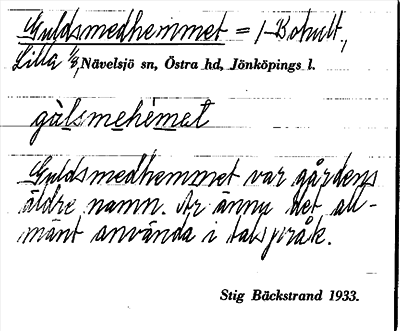 Guldsmedhemmet = /-Bohult,
Lilla 1/3, Nävelsjö sn, Östra hd, Jönköpings l.
gu̇lsmehemet
Guldsmedhemmet var gårdens
äldre namn. Är ännu det all-
mänt använda i talspråk.
Stig Bäckstrand 1933.